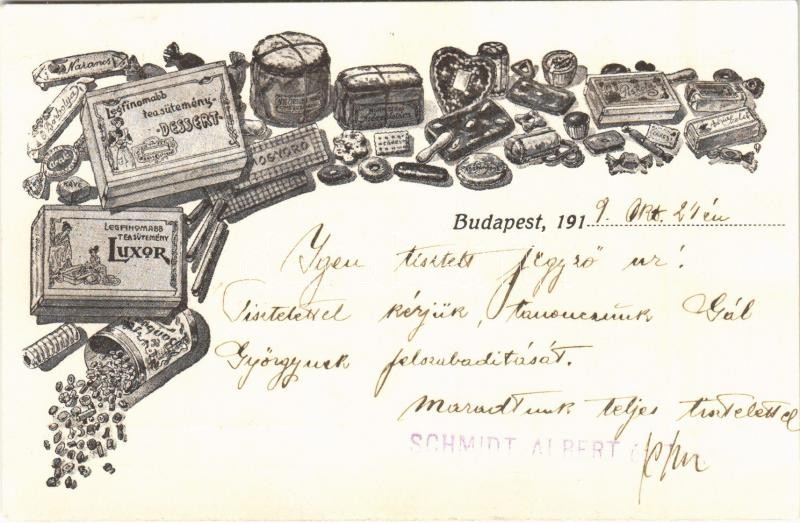 Narancs
Legfinomabb
teasütemény
DESSERT
MOGYORO
KÁVÉ
LEGFINOMABB
TEASÜTEMÉNY
LUXOR
Budapest, 1919. Okt. 24én
Igen tisztelt jegyző úr!
Tisztelettel kérjük, tanonczunk Gál
Györgynek felszabadítását.
Maradtunk teljes tisztelettel
SCHMIDT ALBERT